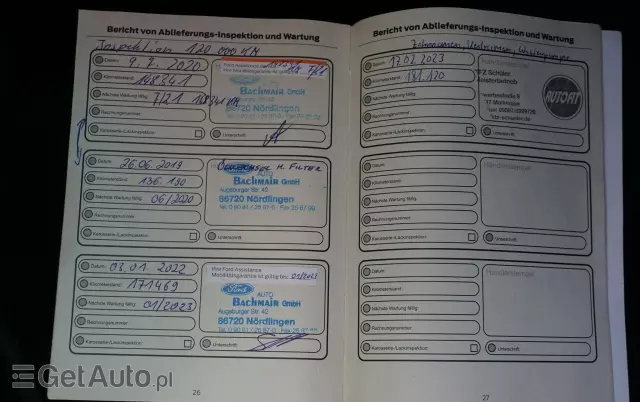 Bericht von Ablieferungs-Inspektion und Wartung
Inspektion 120 000 KM
Datum 9. 7. 2020
Kilometerstand
Nächste Wartung fällig 7/21
Rechnungsnummer
Karosserie-/Lackinspektion
Ford Assistance
BACHMAIR GmbH
Augsburger Str.
86720 Nördlingen
Unterschrift
Datum 26.06.2019
Kilometerstand 136.190
Nächste Wartung fällig 06/2020
Rechnungsnummer
Karosserie-/Lackinspektion
FILTER
AUTO
BACHMAIR GmbH
Augsburger Str. 43
86720 Nördlingen
Unterschrift
Datum 03.01.2022
Kilometerstand 171469
Nächste Wartung fällig 01/2023
Rechnungsnummer
Karosserie-/Lackinspektion
Ihre Ford Assistance
Mobilitätsgarantie ist gültig bis: 01/2023
Ford AUTO
BACHMAIR GmbH
Augsburger Str. 43
86720 Nördlingen
Unterschrift
26
Bericht von Ablieferungs-Inspektion und Wartung
Zahnriemen,
Datum 17.02.2023
Kilometerstand 181.170
Nächste Wartung fällig
Rechnungsnummer
Karosserie-/Lackinspektion
AUTOFIT
Unterschrift
Datum
Kilometerstand
Nächste Wartung fällig
Rechnungsnummer
Karosserie-/Lackinspektion
Händlerstempel
Unterschrift
Datum
Kilometerstand
Nächste Wartung fällig
Rechnungsnummer
Karosserie-/Lackinspektion
Händlerstempel
Unterschrift
27
GetAuto.pl